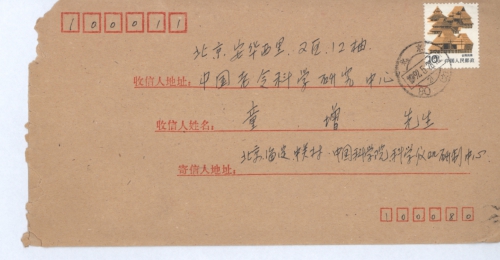 100011
北京,安华西里,又区,12抽.
收信人地址: 中国老令科学研究中心
收信人姓名: 童增 先生
北京海淀中关村 中国科学院科学仪器研制中心
寄信人地址:
100080
20
中国人民邮政